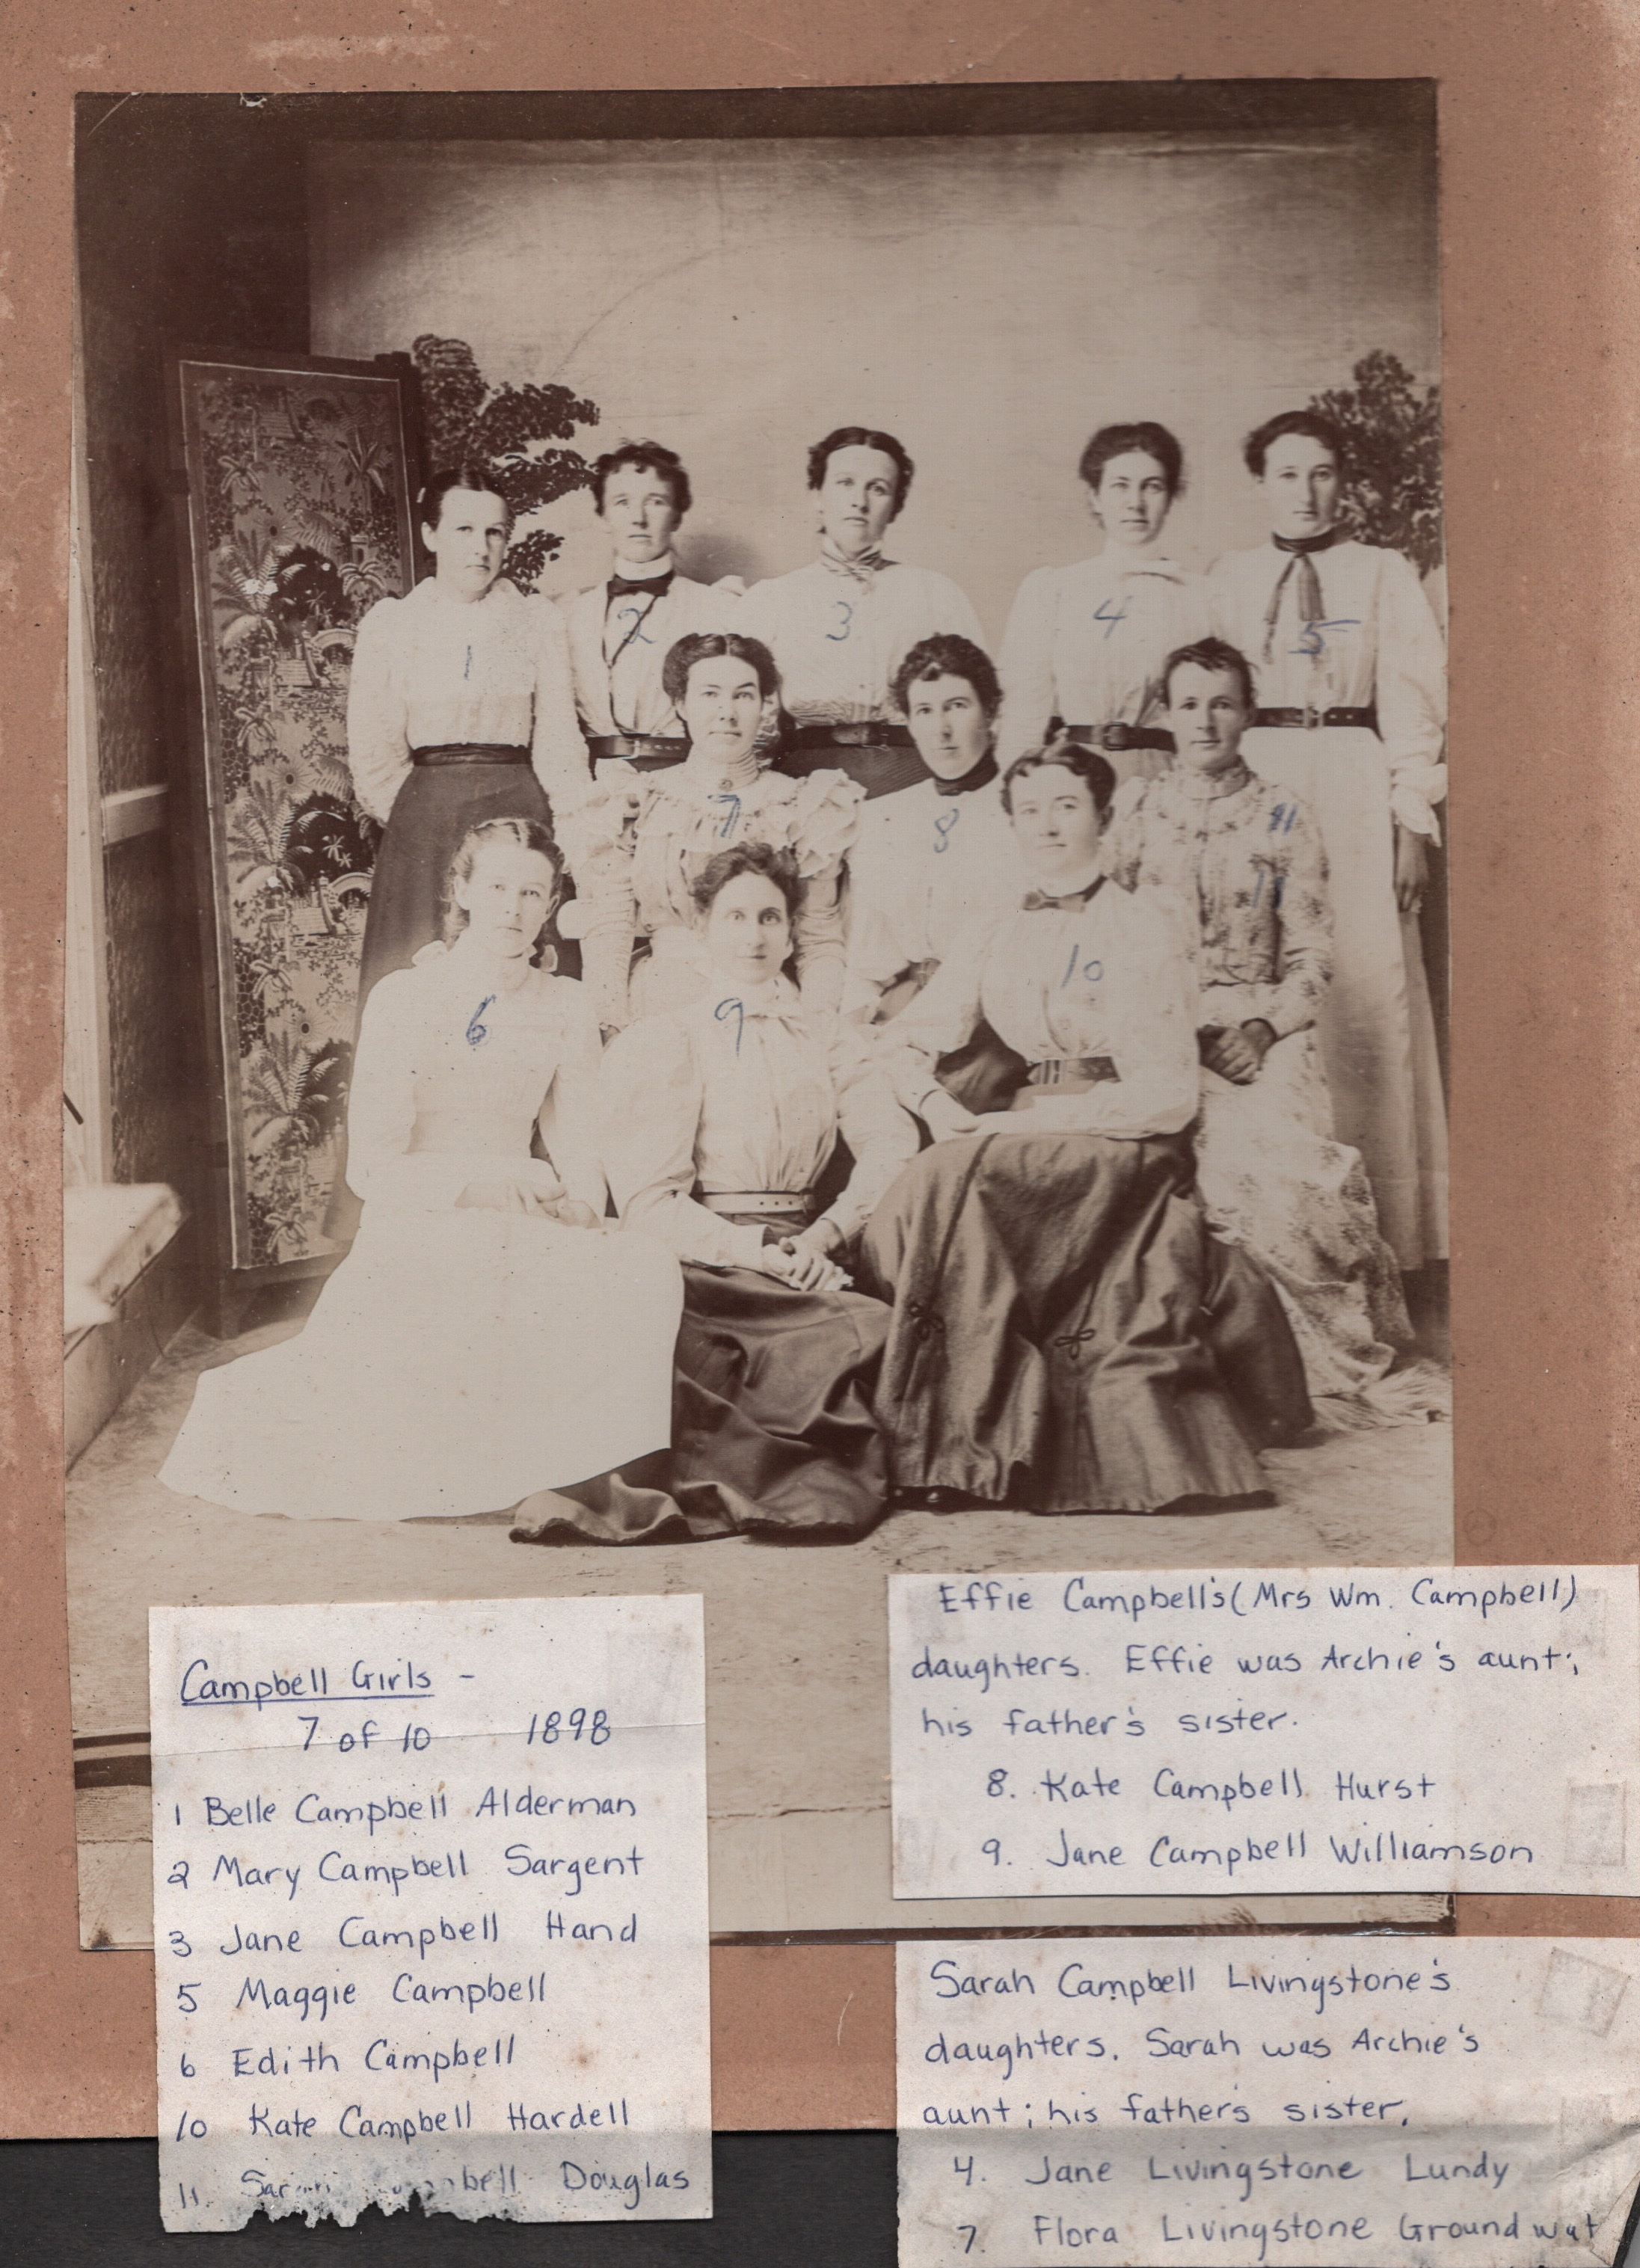 1
2
3
4
5
6
7
8
9
10
11
11
Campbell Girls -
7 of 10 1898
1 Belle Campbell Alderman
2 Mary Campbell Sargent
3 Jane Campbell Hand
5 Maggie Campbell
6 Edith Campbell
10 Kate Campbell Hardell
11. Douglas
Effie Campbell's (Mrs Wm. Campbell)
daughters. Effie was Archie's aunt;
his father's sister.
8. Kate Campbell Hurst
9. Jane Campbell Williamson
Sarah Campbell Livingstone's
daughters. Sarah was Archie's
aunt; his father's sister.
4. Jane Livingstone Lundy
7. Flora Livingstone